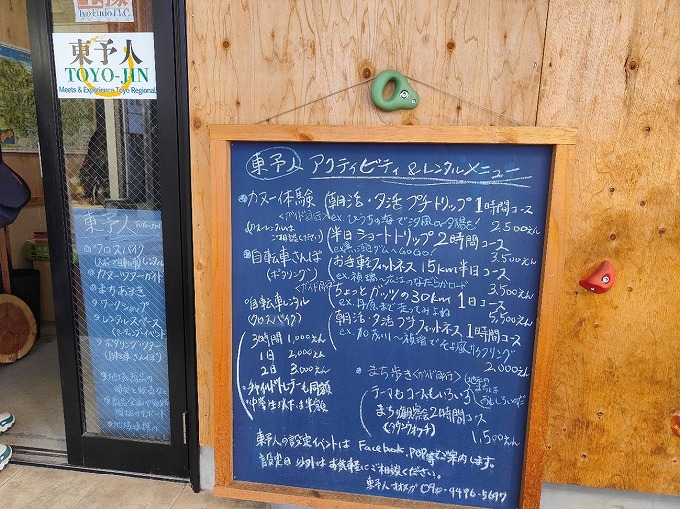 Iyokudo I.C.
東予人
TOYO-JIN
Meets & Experience Toyo Regional
東予人
クロスバイク
カヌーツアーガイド
まちあるき
ワークショップ
レンタルスペース
ポタリングツアー
(自転車さんぽ)
東予人 アクティビティ &レンタルメニュー
カヌー体験
<ガイド同行>
(カヌーレンタルは
ご相談ください)
朝活・夕活プチトリップ1時間コース
ex. ひうちの海で汐風or夕陽を!
2,500えん
半日ショートトリップ2時間コース
GoGo!
3,500えん
自転車さんぽ
(ポタリング)
<ガイド同行>
お手軽フィットネス15km半日コース
3,500えん
ちょっとガッツの30km1日コース
ex. 丹原まで走ってみよね
5,500えん
朝活・夕活プチフィットネス1時間コース
ex. 加茂川〜禎瑞でそよ風サイクリング
2,000えん
自転車レンタル
(クロスバイク)
3時間 1,000えん
1日 2,000えん
2日 3,000えん
チャイルドトレーラーも同額
中学生以下は半額
まち歩き<ガイド同行>
テーマもコースもいろいろ
まち観察会2時間コース
(タウンウォッチ)
1,500えん
東予人の設定イベントは Facebook, POP等でご案内します。
設定日以外はお気軽にご相談ください。
東予人 090-4496-5697